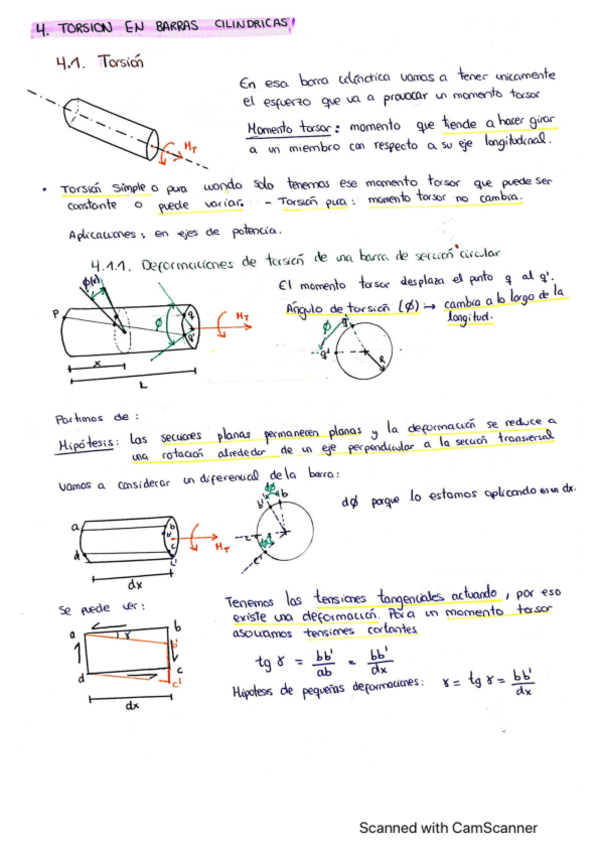 4. TORSION EN BARRAS CILINDRICAS
4.1. Torsión
En esa barra vamos a tener unicamente
el esfuerzo que va a provocar un momento torsor
Momento torsor: momento que tiende a hacer girar
a un miembro con respecto a su eje longitudinal.
MT
• Torsión simple o pura cuando solo tenemos ese momento torsor que puede ser
constante o puede variar. - Torsión pura: momento torsor no cambia.
Aplicaciones: en ejes de potencia.
4.1.1. Deformaciones de torsión de una barra de sección circular
El momento torsor desplaza el punto q al q'.
Ángulo de torsión (ϕ) → cambia a lo largo de la
longitud.
ϕ(x)
P
ϕ
q
q'
MT
x
L
ϕ
q
q'
R
Partimos de:
Hipótesis: las secciones planas permanecen planas y la deformación se reduce a
una rotación alrededor de un eje perpendicular a la sección transversal
Vamos a considerar un diferencial de la barra:
dϕ porque lo estamos aplicando en un dx.
a
b
b'
c
c'
d
MT
dx
dϕ
b'
b
c
dϕ
c'
Se puede ver:
Tenemos las tensiones tangenciales actuando, por eso
existe una deformación. Para un momento torsor
asociamos tensiones cortantes
a
γ
b
b'
d
c
c'
dx
tg γ = bb'/ab = bb'/dx
Hipótesis de pequeñas deformaciones: γ = tg γ = bb'/dx
Scanned with CamScanner